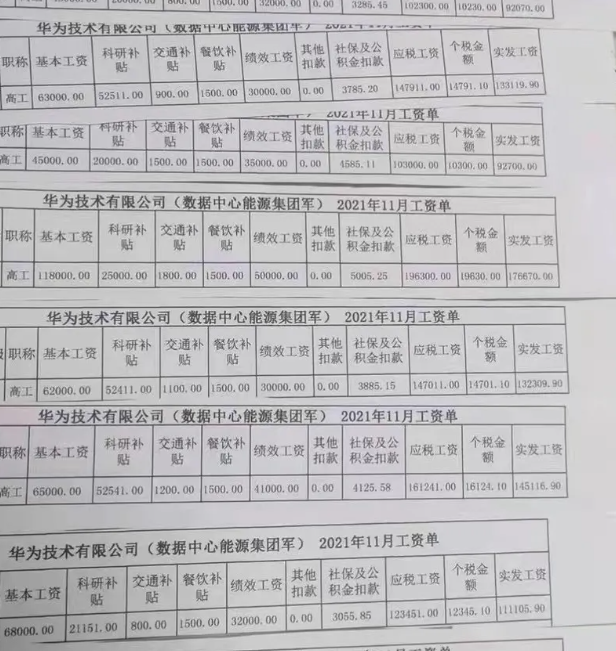 3285.45 102300.00 10230.00 92070.00
华为技术有限公司（数据中心能源集团军）2021年11月工资单
职称 基本工资 科研补贴 交通补贴 餐饮补贴 绩效工资 其他扣款 社保及公积金扣款 应税工资 个税金额 实发工资
高工 63000.00 52511.00 900.00 1500.00 30000.00 0.00 3785.20 147911.00 14791.10 133119.90
2021年11月工资单
职称 基本工资 科研补贴 交通补贴 餐饮补贴 绩效工资 其他扣款 社保及公积金扣款 应税工资 个税金额 实发工资
高工 45000.00 20000.00 1500.00 1500.00 35000.00 0.00 4585.11 103000.00 10300.00 92700.00
华为技术有限公司（数据中心能源集团军） 2021年11月工资单
职称 基本工资 科研补贴 交通补贴 餐饮补贴 绩效工资 其他扣款 社保及公积金扣款 应税工资 个税金额 实发工资
高工 118000.00 25000.00 1800.00 1500.00 50000.00 0.00 5005.25 196300.00 19630.00 176670.00
华为技术有限公司（数据中心能源集团军） 2021年11月工资单
职称 基本工资 科研补贴 交通补贴 餐饮补贴 绩效工资 其他扣款 社保及公积金扣款 应税工资 个税金额 实发工资
高工 62000.00 52411.00 1100.00 1500.00 30000.00 0.00 3885.15 147011.00 14701.10 132309.90
华为技术有限公司（数据中心能源集团军） 2021年11月工资单
职称 基本工资 科研补贴 交通补贴 餐饮补贴 绩效工资 其他扣款 社保及公积金扣款 应税工资 个税金额 实发工资
高工 65000.00 52541.00 1200.00 1500.00 41000.00 0.00 4125.58 161241.00 16124.10 145116.90
华为技术有限公司（数据中心能源集团军） 2021年11月工资单
基本工资 科研补贴 交通补贴 餐饮补贴 绩效工资 其他扣款 社保及公积金扣款 应税工资 个税金额 实发工资
68000.00 21151.00 800.00 1500.00 32000.00 0.00 3055.85 123451.00 12345.10 111105.90